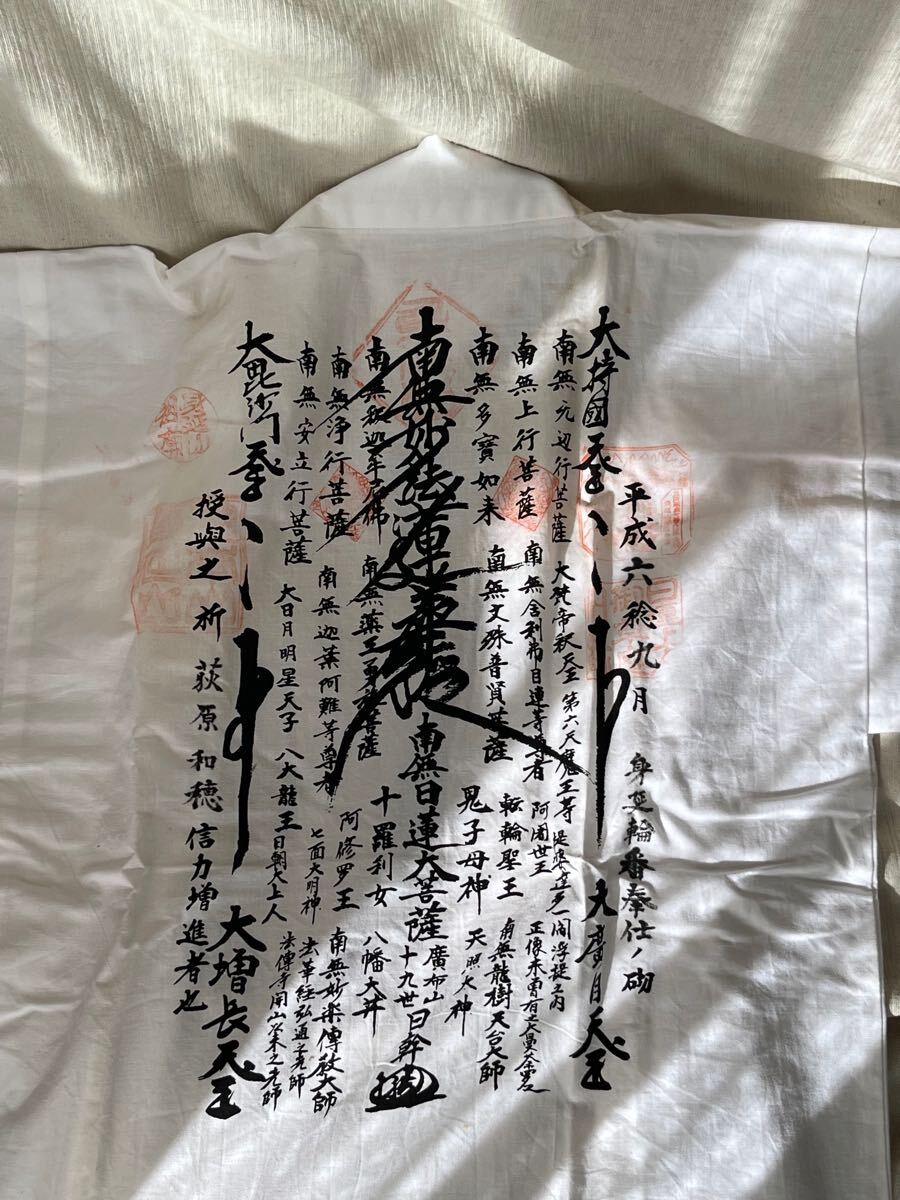 平成六稔九月　身延輪番奉仕ノ砌
大持國天王
大廣目天王
南無无辺行菩薩　大梵帝釈天王　第六天魔王等　提婆達多　一閻浮提之内
南無上行菩薩　南無舎利弗目連等尊者　阿闍世王　正像未曽有之大曼荼羅也
南無多寶如来　南無文殊普賢菩薩　転輪聖王　南無龍樹天台大師
鬼子母神　天照大神
南無妙法蓮華経　南無日蓮大菩薩　廣布山
十九世　日幹
南無釈迦牟尼佛　南無薬王勇施菩薩　十羅利女　八幡大井
南無浄行菩薩　南無迦葉阿難等尊者　阿修罗王　南無妙楽傳教大師
南無安立行菩薩　大日月明星天子　八大龍王　七面大明神　法華経弘通之先師
日朝大上人　法傳寺開山以来之先師
大毘沙門天王
大増長天王
授與之　祈　荻原和穂信力増進者也